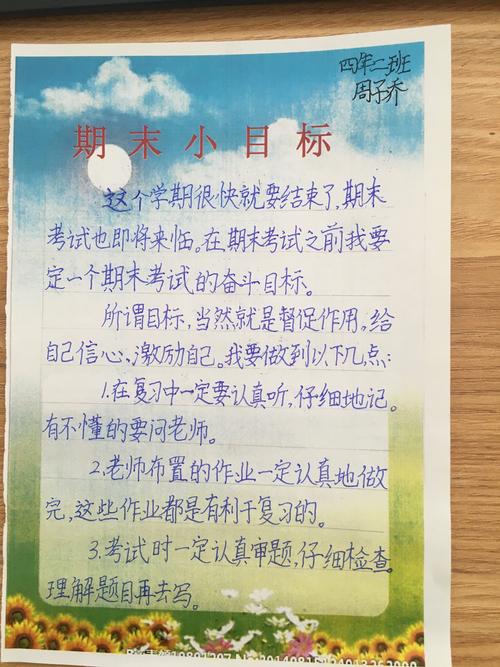 四年二班
周子乔
期末小目标
这个学期很快就要结束了,期末
考试也即将来临。在期末考试之前我要
定一个期末考试的奋斗目标。
所谓目标,当然就是督促作用。给
自己信心、激励自己。我要做到以下几点:
1.在复习中一定要认真听,仔细地记。
有不懂的要问老师。
2.老师布置的作业一定认真地做
完,这些作业都是有利于复习的。
3.考试时一定认真审题,仔细检查。
理解题目再去写。